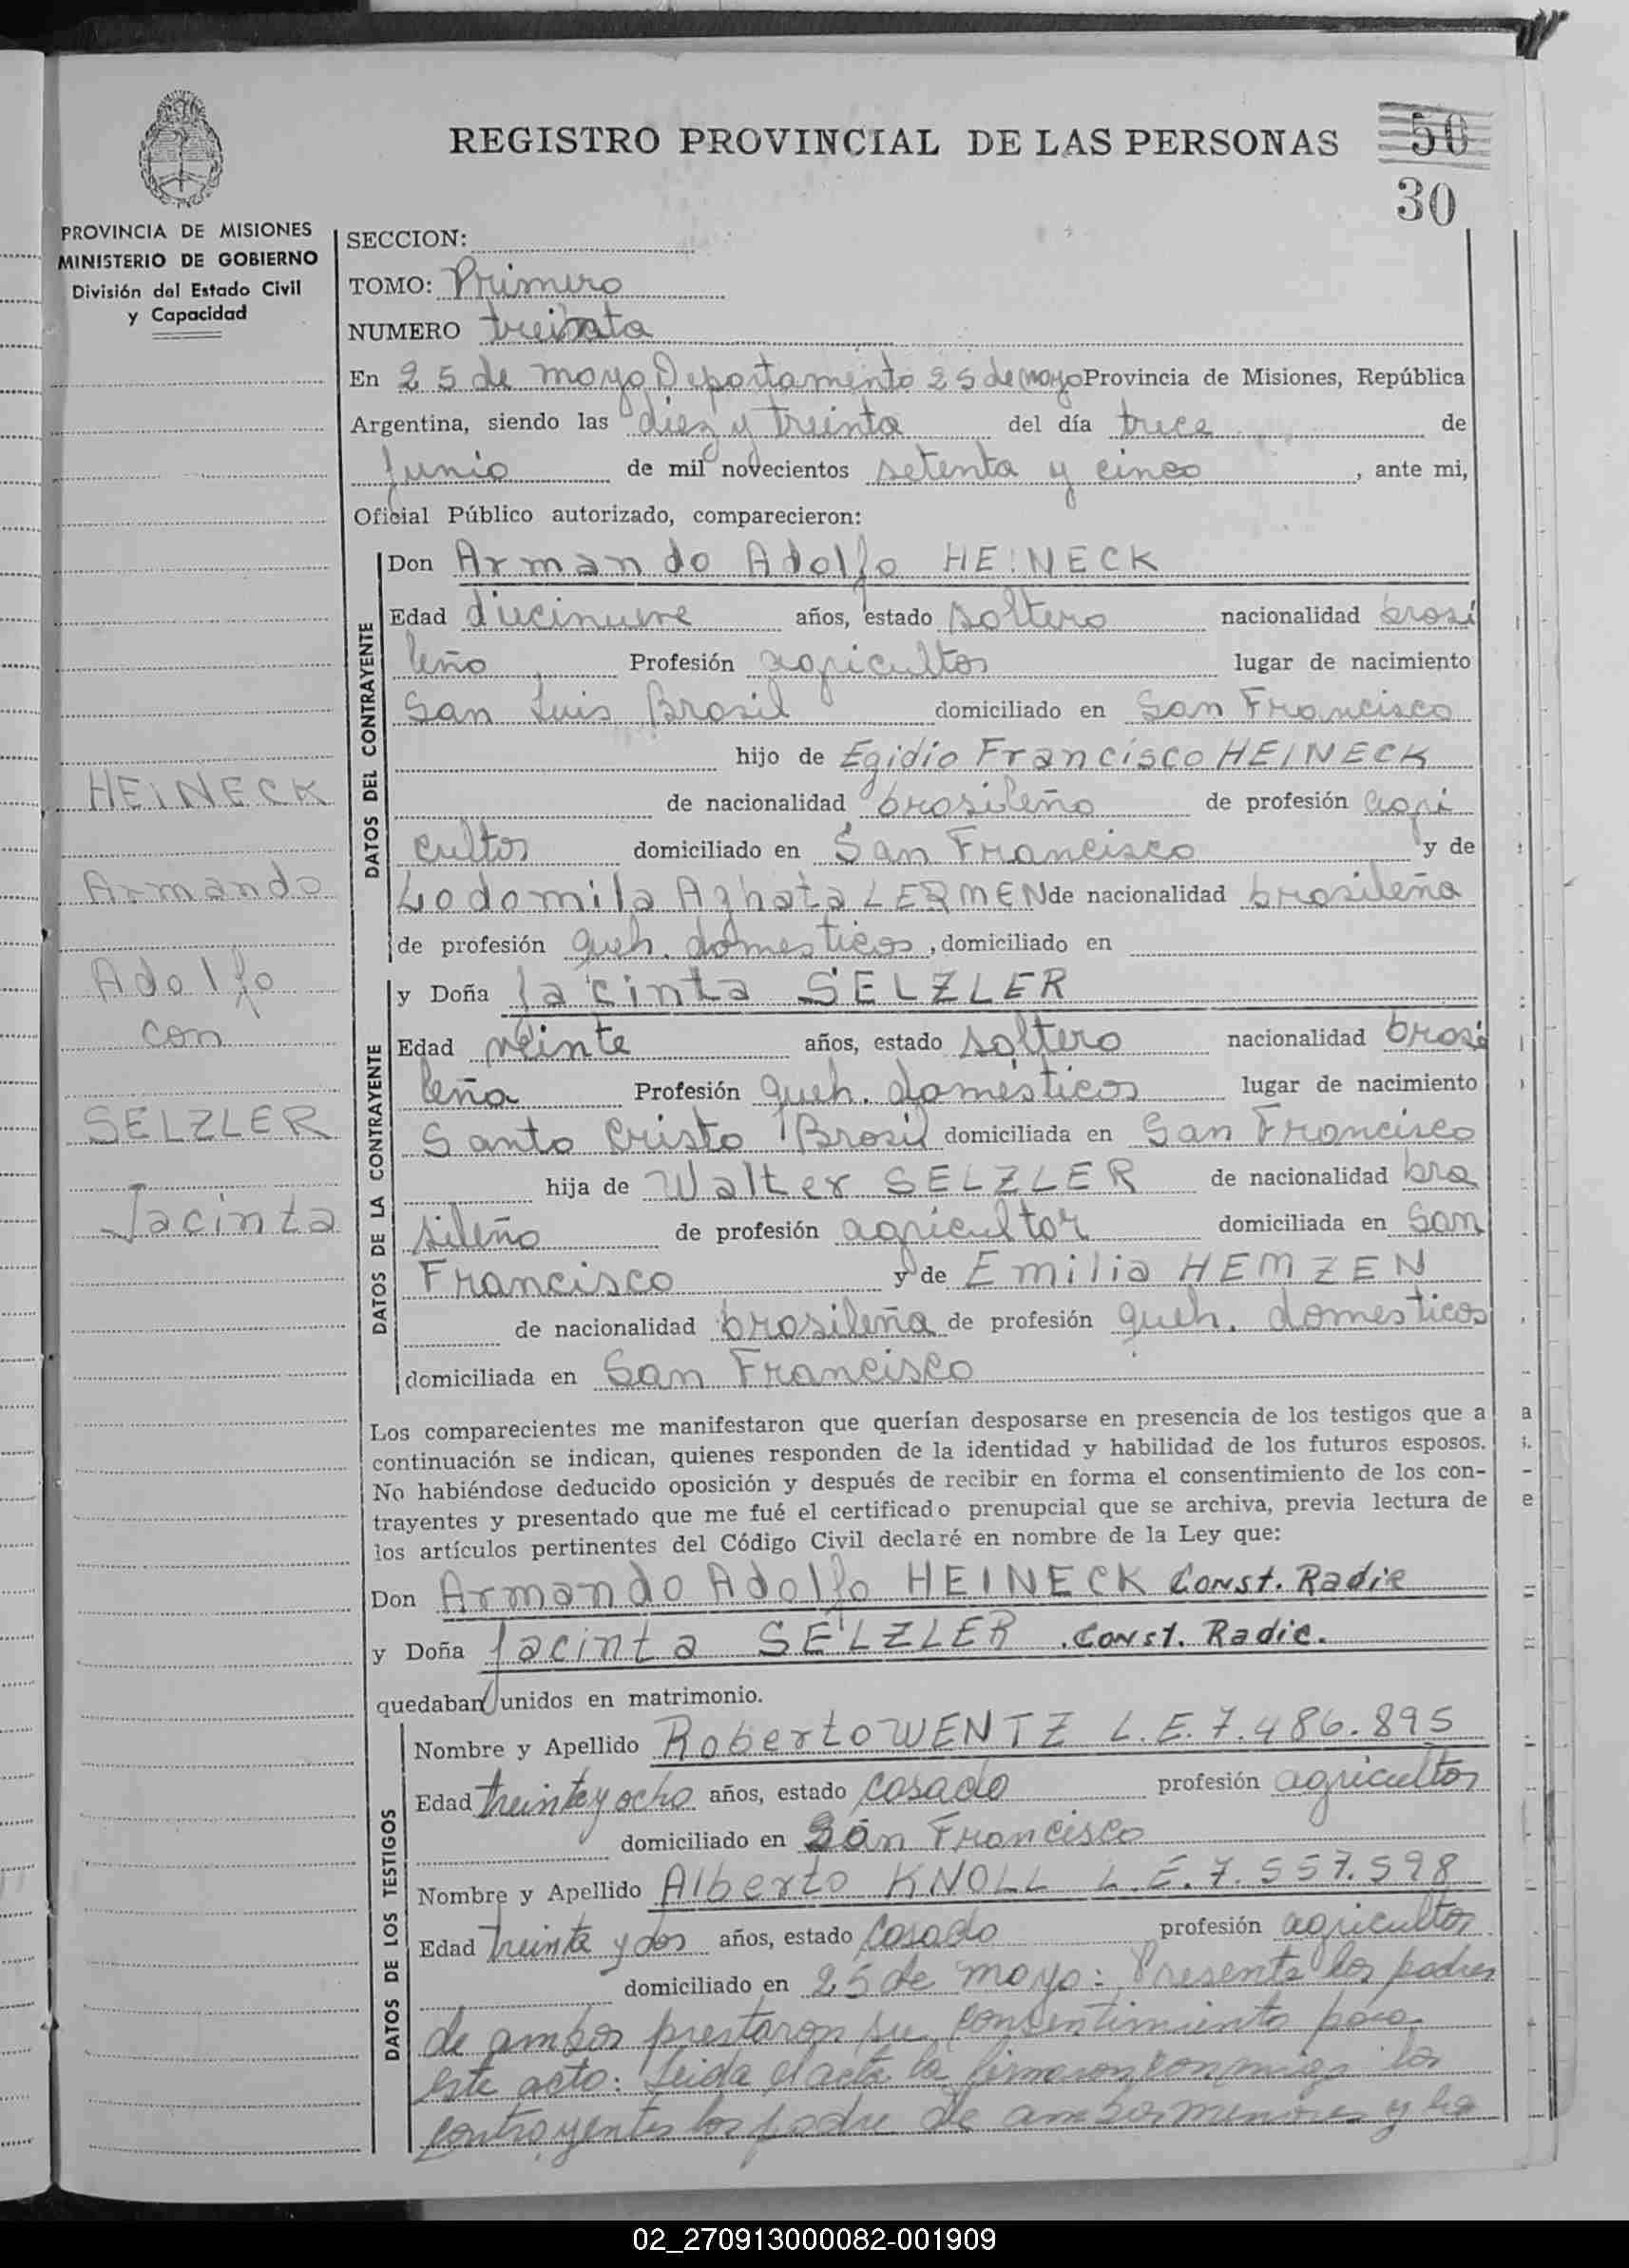 REGISTRO PROVINCIAL DE LAS PERSONAS
50
30
PROVINCIA DE MISIONES
MINISTERIO DE GOBIERNO
División del Estado Civil
y Capacidad
SECCION:
TOMO: Primero
NUMERO treinta
En 25 de mayo Departamento 25 de mayo Provincia de Misiones, República
Argentina, siendo las diez y treinta del día trece de
Junio de mil novecientos setenta y cinco, ante mi,
Oficial Público autorizado, comparecieron:
DATOS DEL CONTRAYENTE
Don Armando Adolfo HEINECK
Edad diecinueve años, estado soltero nacionalidad brasi
leño Profesión agricultor lugar de nacimiento
San Luis Brasil domiciliado en San Francisco
hijo de Egidio Francisco HEINECK
de nacionalidad brasileño de profesión agri
cultor domiciliado en San Francisco y de
Lodomila Aghata LERMEN de nacionalidad brasileña
de profesión queh. domesticos, domiciliado en
HEINECK
Armando
Adolfo
con
SELZLER
Jacinta
DATOS DE LA CONTRAYENTE
y Doña Jacinta SELZLER
Edad veinte años, estado soltero nacionalidad brasi
leña Profesión queh. domésticos lugar de nacimiento
Santo Cristo Brasil domiciliada en San Francisco
hija de Walter SELZLER de nacionalidad bra
sileño de profesión agricultor domiciliada en San
Francisco y de Emilia HEMZEN
de nacionalidad brasileña de profesión queh. domesticos
domiciliada en San Francisco
Los comparecientes me manifestaron que querían desposarse en presencia de los testigos que a
continuación se indican, quienes responden de la identidad y habilidad de los futuros esposos.
No habiéndose deducido oposición y después de recibir en forma el consentimiento de los con-
trayentes y presentado que me fué el certificado prenupcial que se archiva, previa lectura de
los artículos pertinentes del Código Civil declaré en nombre de la Ley que:
Don Armando Adolfo HEINECK Const. Radic
y Doña Jacinta SELZLER . Const. Radic.
quedaban unidos en matrimonio.
DATOS DE LOS TESTIGOS
Nombre y Apellido Roberto WENTZ L.E. 7.486.895
Edad treinta y ocho años, estado casado profesión agricultor
domiciliado en San Francisco
Nombre y Apellido Alberto KNOLL L.E. 7.557.598
Edad treinta y dos años, estado casado profesión agricultor
domiciliado en 25 de mayo: Presente los padres
de ambos prestaron su consentimiento para
este acto. Leida el acta la firmaron conmigo los
contrayentes los padre de ambos menores y los
02_270913000082-001909